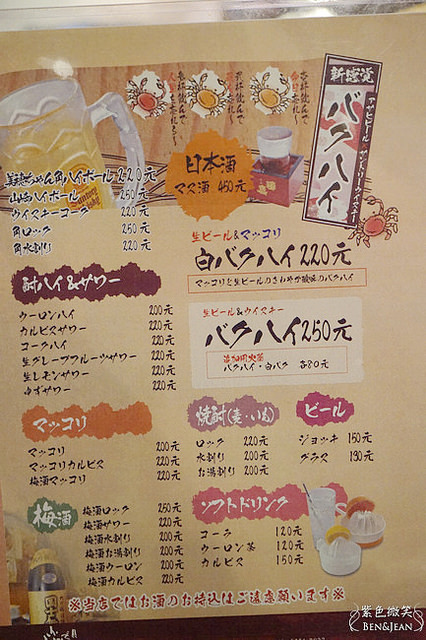 新感覚
バクハイ
アサヒビール サントリーウイスキー
日本酒
マス酒 450元
角ハイボール 220元
山崎ハイボール 250元
ウイスキーコーク 220元
角ロック 250元
角水割り 220元
生ビール&マッコリ
白バクハイ 220元
マッコリと生ビールのさわやか酸味のバクハイ
生ビール&ウイスキー
バクハイ 250元
追加用火薬
バクハイ・白バク 各80元
酎ハイ&サワー
ウーロンハイ 200元
カルピスサワー 220元
コークハイ 220元
生グレープフルーツサワー 220元
生レモンサワー 220元
ゆずサワー 220元
マッコリ
マッコリ 200元
マッコリカルピス 220元
梅酒マッコリ 220元
焼酎(麦・いも)
ロック 220元
水割り 200元
お湯割り 200元
ビール
ジョッキ 150元
グラス 130元
梅酒
梅酒ロック 250元
梅酒サワー 220元
梅酒水割り 200元
梅酒お湯割り 200元
梅酒ウーロン 220元
梅酒カルピス 220元
ソフトドリンク
コーラ 120元
ウーロン茶 120元
カルピス 150元
※当店ではお酒のお持込はご遠慮願います※
紫色微笑
BEN&JEAN